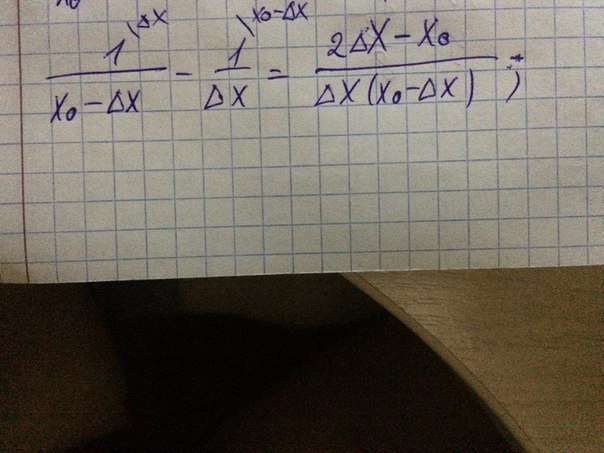 1 \Δx / x₀ − Δx − 1 \x₀−Δx / Δx = 2Δx − x₀ / Δx(x₀ − Δx) ;